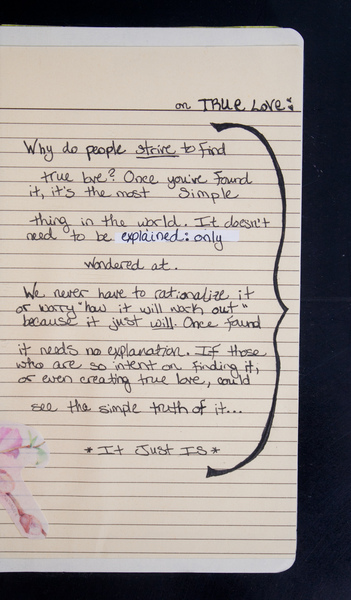 on TRUE LOVE:
Why do people strive to find
true love? Once you've found
it, it's the most simple
thing in the world. It doesn't
need to be explained: only
wondered at.
We never have to rationalize it
or worry "how it will work out"
because it just will. Once found
it needs no explanation. If those
who are so intent on finding it,
or even creating true love, could
see the simple truth of it...
*It Just Is*